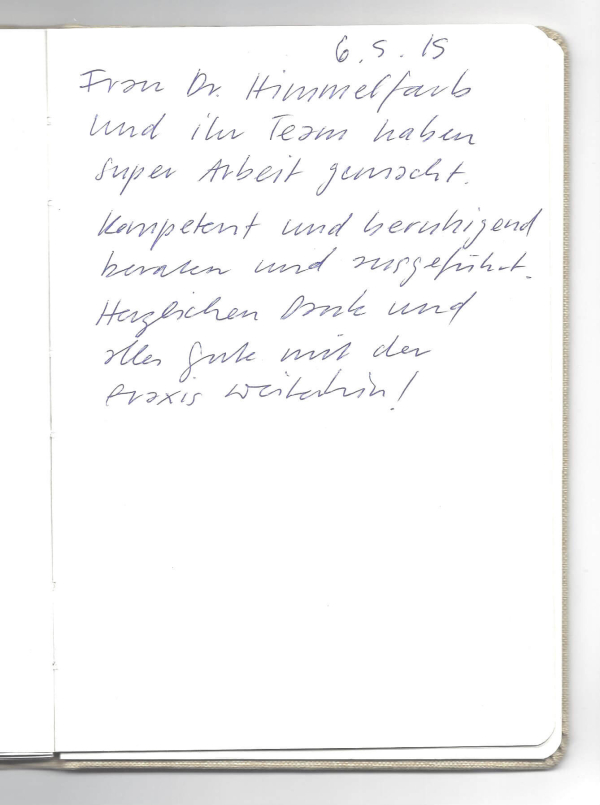 6.5.15
Frau Dr. Himmelfarb
und ihr Team haben
super Arbeit gemacht.
Kompetent und beruhigend
beraten und ausgeführt.
Herzlichen Dank und
alles Gute mit der
Praxis weiterhin!